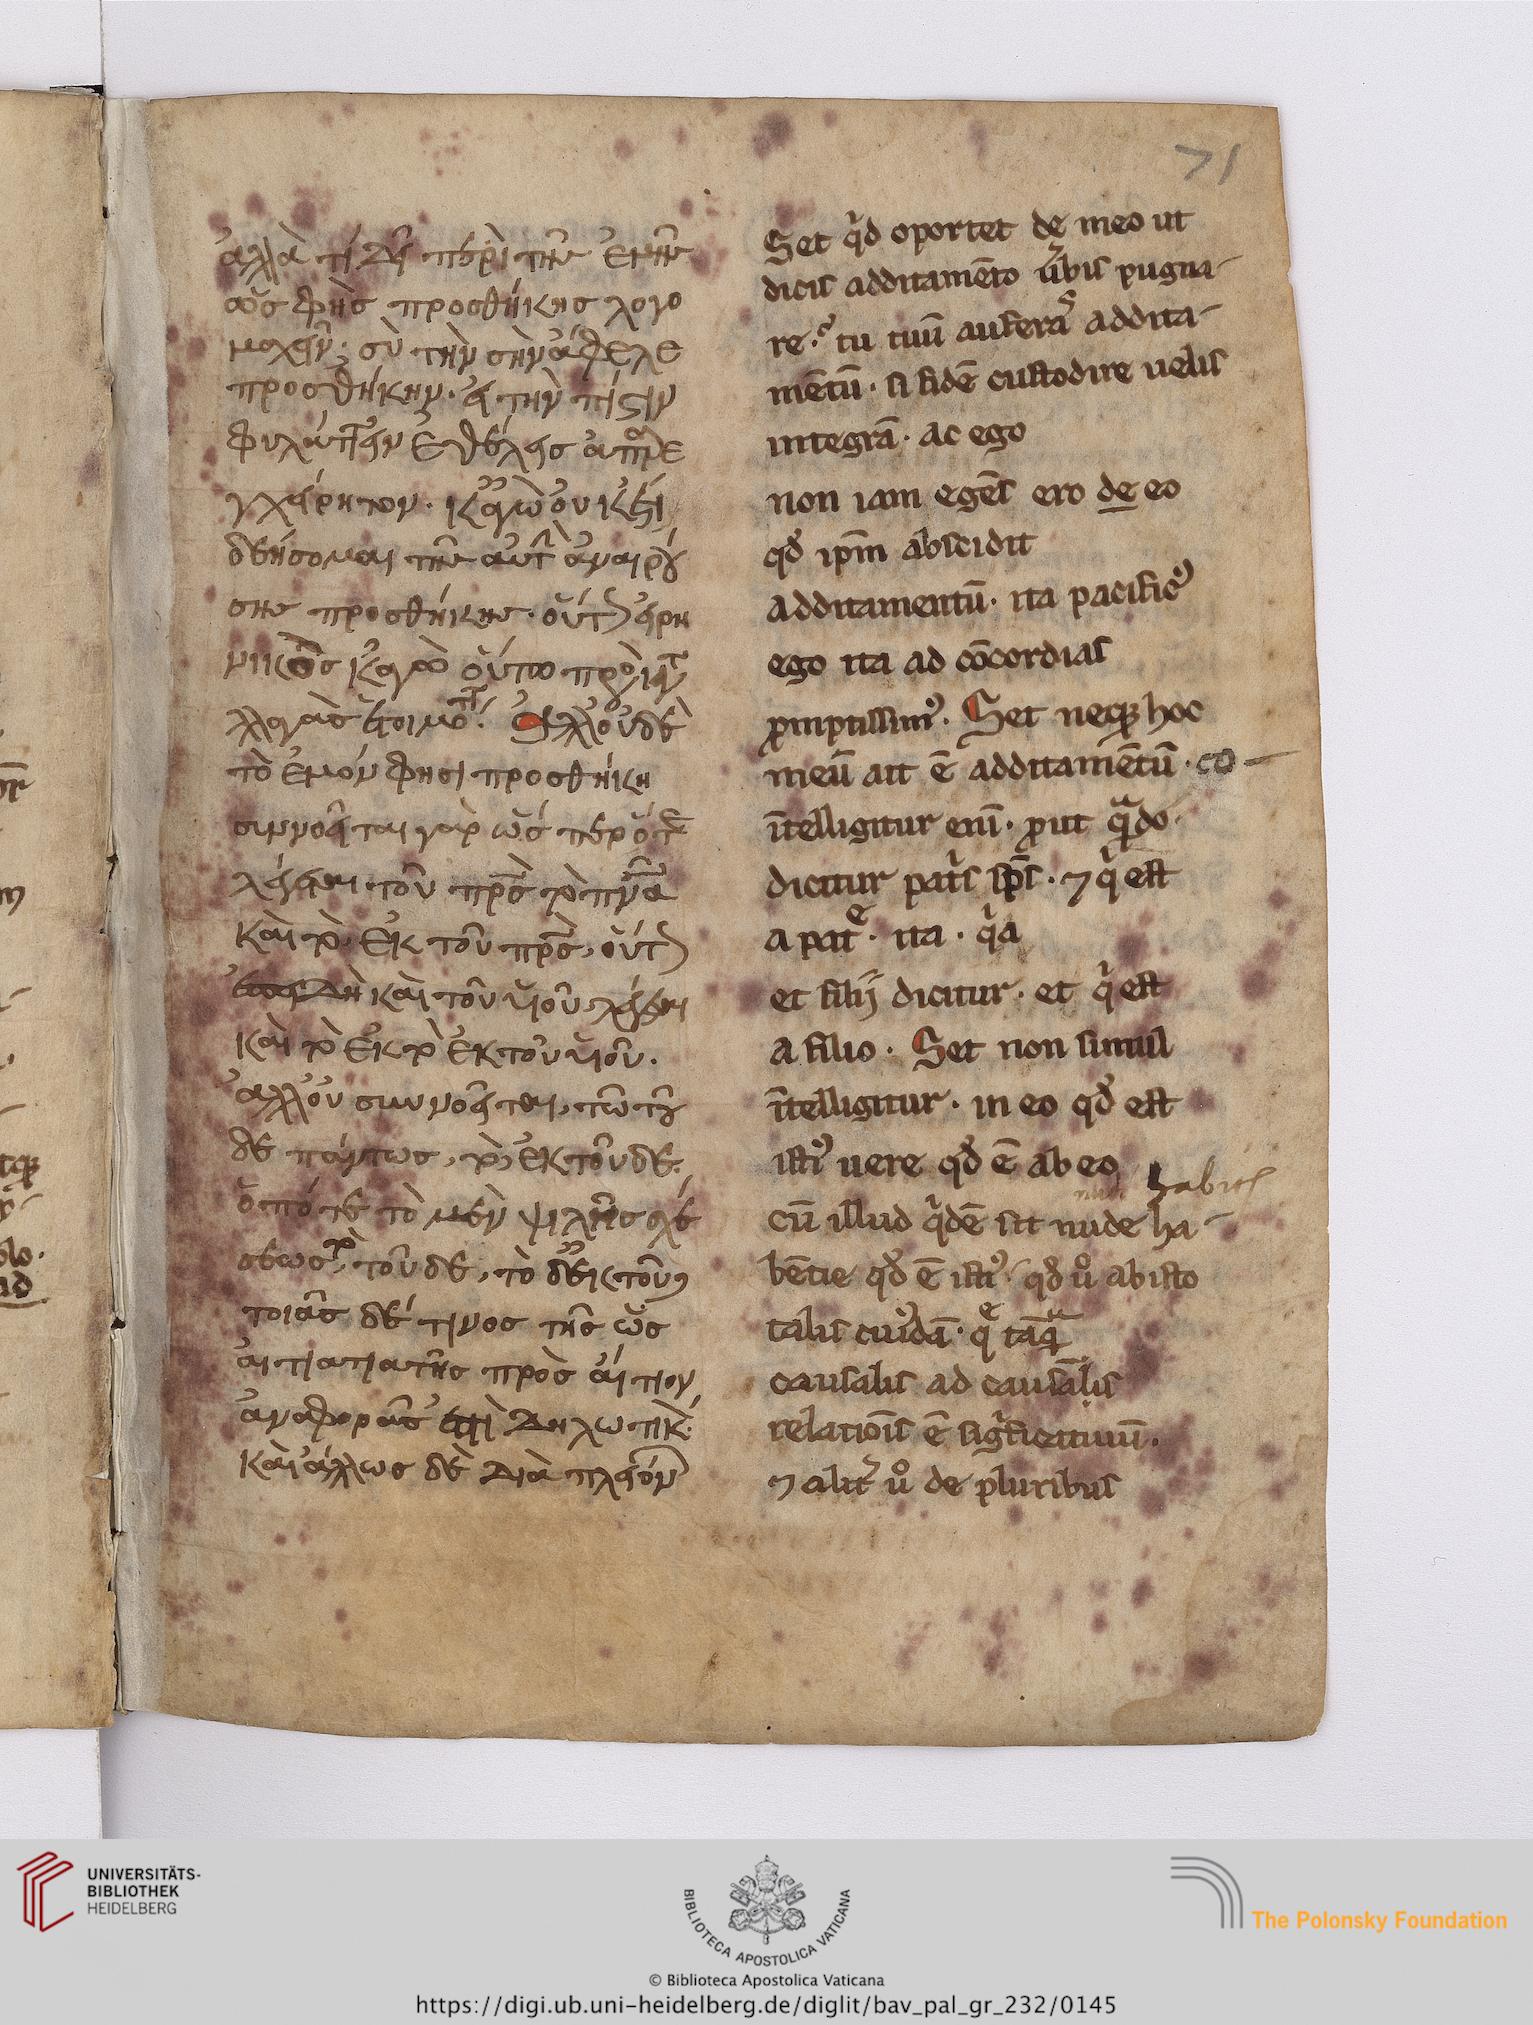 71
ἀλλὰ τί δεῖ περὶ τῆς ἐμῆς
ὡς φῂς προσθήκης λογο
μαχεῖν· σὺ τὴν σὴν ἄφελε
προσθήκην· εἰ τὴν πίστιν
φυλάττειν ἐθέλεις ἀπαρε
γχείρητον· κἀγὼ οὐκέτι
δεήσομαι τῆς αὐτὴν ἀναιρού
σης προσθήκης· οὕτως εἰρη
νικὸς κἀγὼ οὕτω πρὸς καταλ
λαγὰς ἕτοιμος· Ἀλλ' οὐδὲ
τὸ ἐμόν φησι προσθήκη
συννοεῖται γὰρ ὥσπερ ὅτε
λέγεται τοῦ πρς τὸ πνα
καὶ τὸ ἐκ τοῦ πρς, οὕτως
καὶ τοῦ υἱοῦ λέγεται
καὶ τὸ ἐκ τὸ ἐκ τοῦ υἱοῦ.
ἀλλ' οὐ συννοεῖται, τῷ τοῦ
δε πάντως, τὸ, ἐκ τοῦδε·
ὁπότε τὸ μὲν ψιλῆς σχέ
σεως, τὸ τοῦδε, τὸ δ' ἐκ τοῦ
τοιᾶς δέ τινος τῆς ὡς
αἰτιατιατῆς πρὸς αἴτιον
ἀναφορᾶς ἐστὶ δηλωτικόν·
καὶ ἄλλως δὲ διὰ πλειόνων
Set qd oportet de meo ut
dicis additamēto ūbis pugna-
re· tu tuū auferas addita-
mētū· si fidē custodire uelis
integrā· ac ego
non iam egēs ero de eo
qd ipm abscidit
additamentū· ita pacific9
ego ita ad cōcordias
promptissim9· Set neq3 hoc
meū ait ē additamētū· co-
ītelligitur enī· put qādo
dicitur patis sps· ⁊ q est
a patre· ita· qa
et filij dicitur· et q est
a filio· Set non simul
ītelligitur· in eo qd est
isti9 uere qd ē ab eo
habitus
cū illud qdē sit nude ha-
bētie qd ē isti9· qd uo ab isto
talis cui9dā· que tāqā
causalis ad causālis
relatiōis ē significatiuū·
⁊ alit uo de pluribus
UNIVERSITÄTS-
BIBLIOTHEK
HEIDELBERG
BIBLIOTECA APOSTOLICA VATICANA
© Biblioteca Apostolica Vaticana
The Polonsky Foundation
https://digi.ub.uni-heidelberg.de/diglit/bav_pal_gr_232/0145